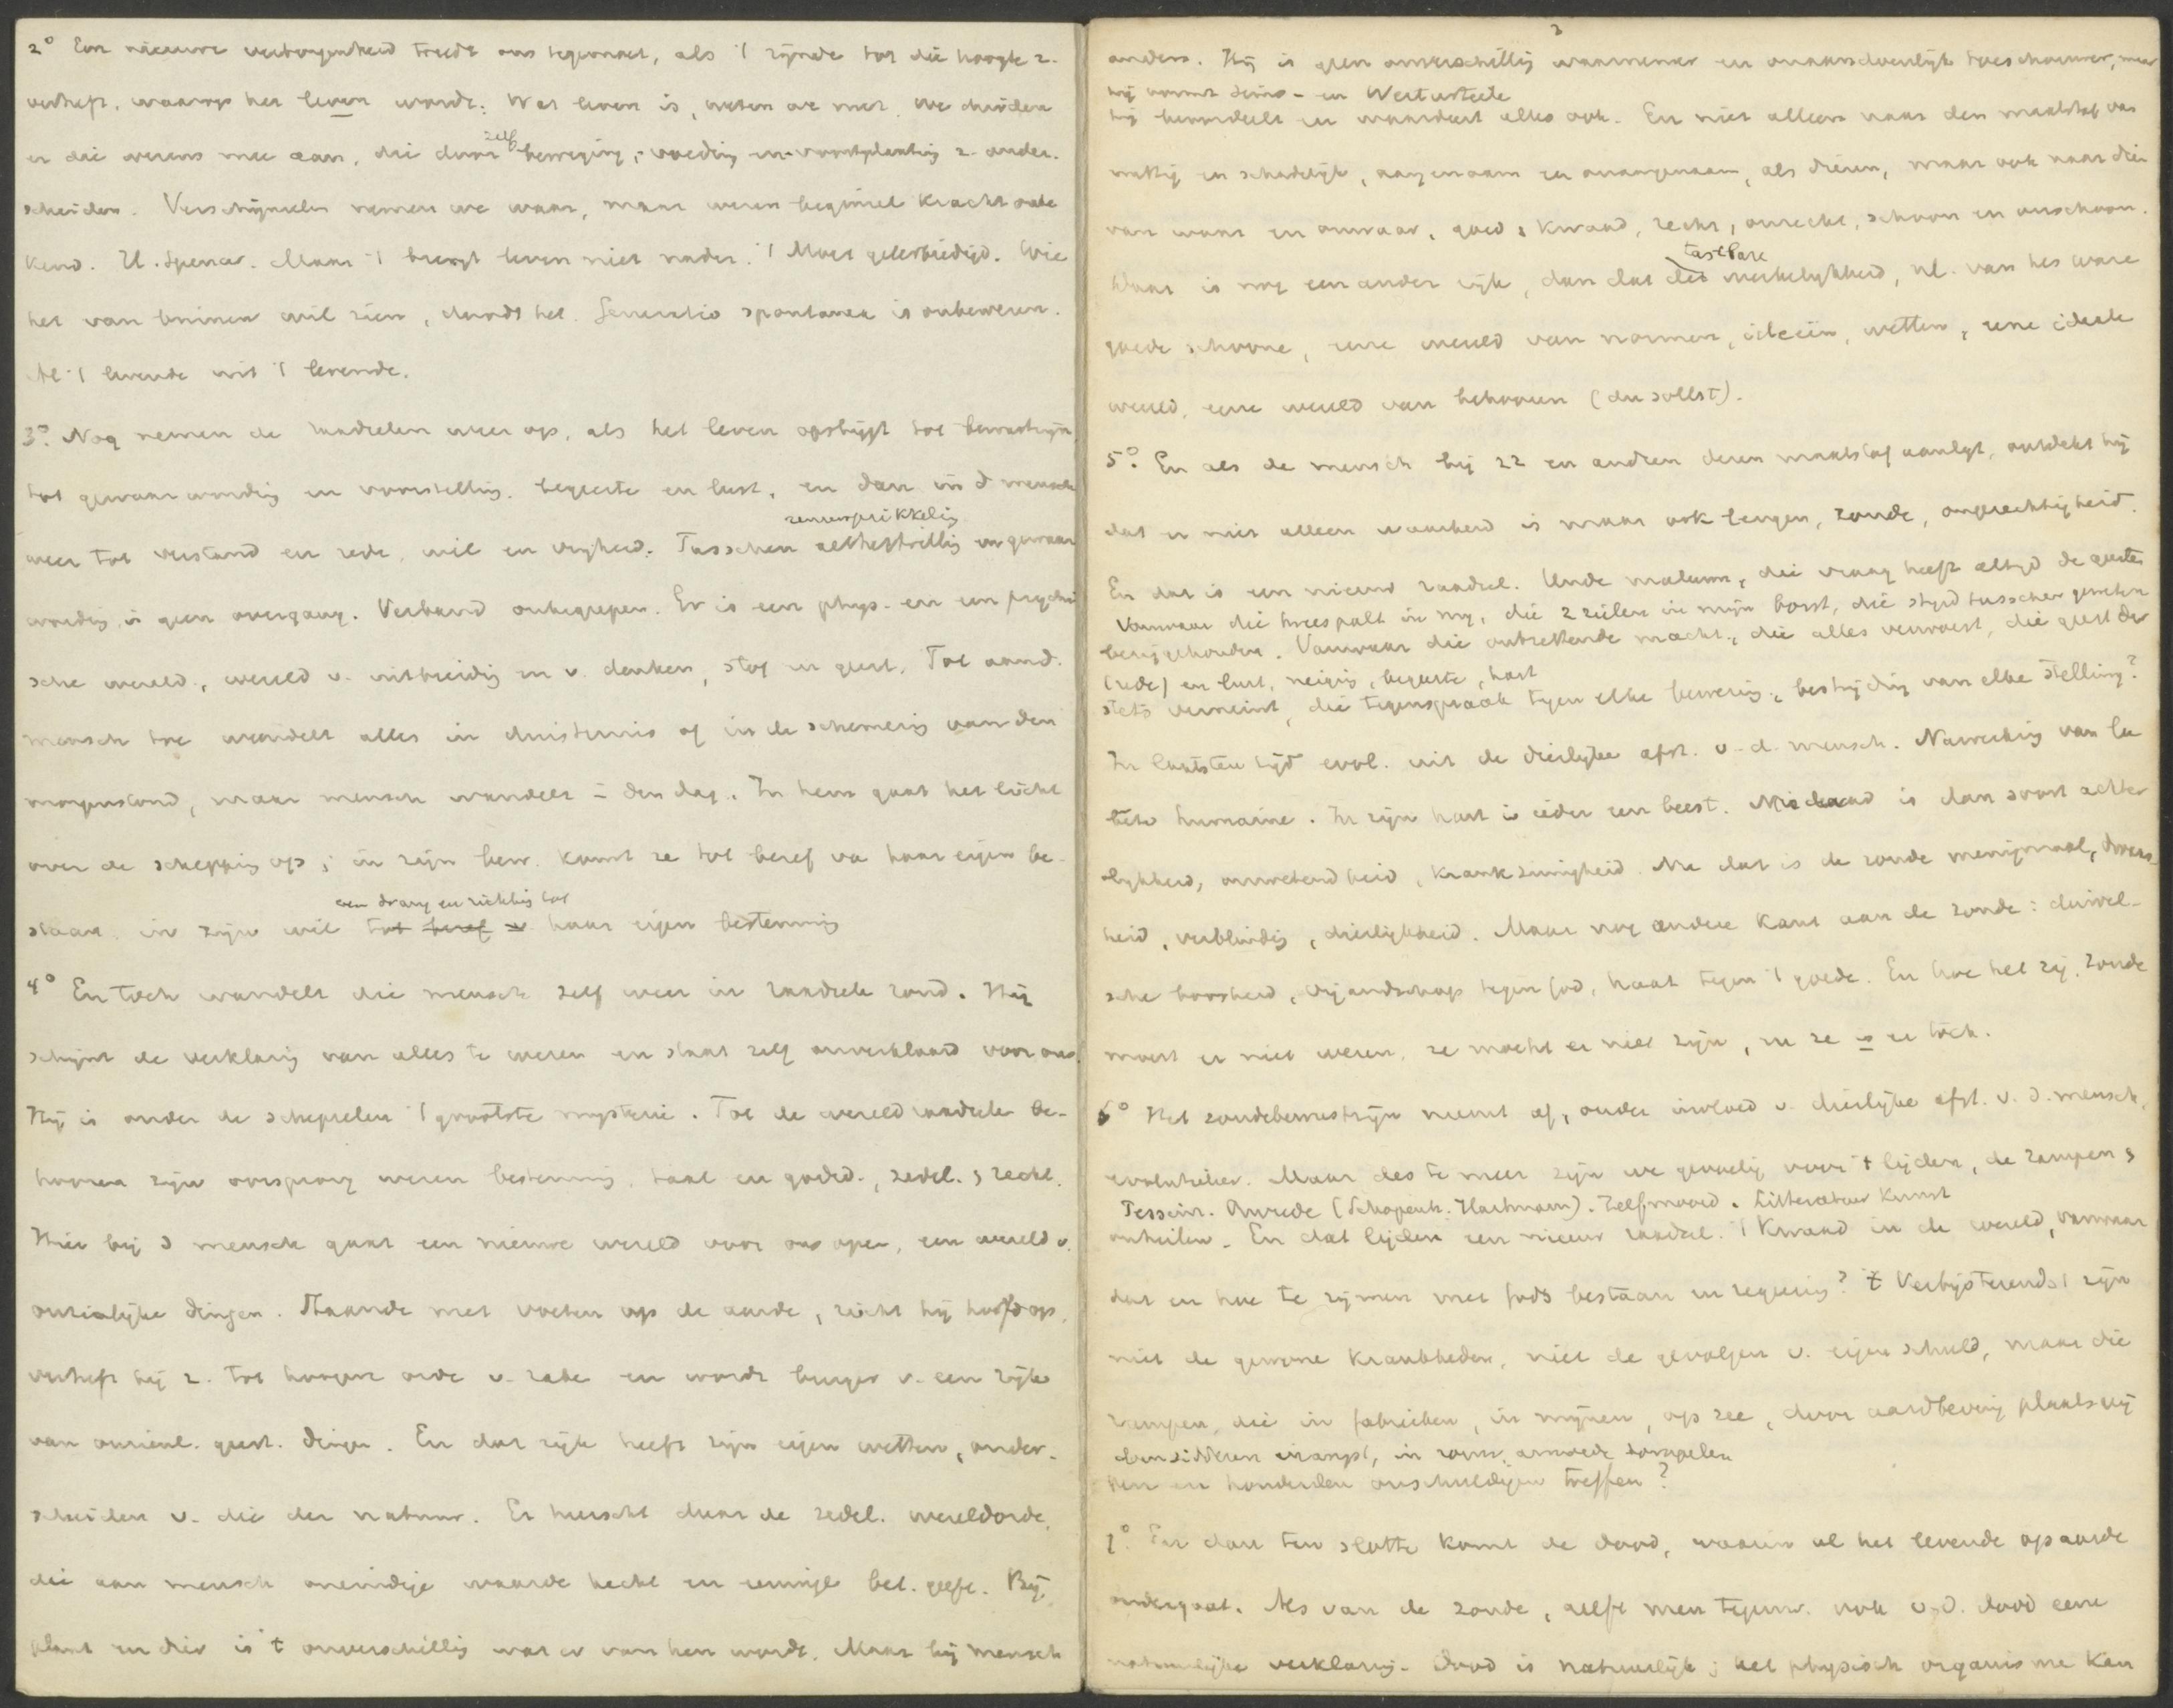 2° Een nieuwe verborgenheid treedt ons tegemoet, als 't zijnde tot die hoogte z.
verheft, waarop het leven wordt. Wat leven is, weten we niet. We duiden
er die wezens mee aan, die door zelfbeweging, voeding en voortplanting z. onder-
scheiden. Verschijnselen nemen we waar, maar wezen beginsel kracht onbe
kend. H. Spencer. Maar 't brengt leven niet nader. 't Moet geëerbiedigd. Wie
het van binnen wil zien, doodt het. Generatio spontanea is onbewezen.
Al 't levende uit 't levende.
3° Nog nemen de raadselen weer op, als het leven opstijgt tot bewustzijn,
tot gewaarwording en voorstelling, begeerte en lust, en dan in d mensch
weer tot verstand en rede, wil en vrijheid. Tusschen
zenuwprikkelig
en gewaar
wording is geen overgang. Verband onbegrepen. Er is een phys. en een psychi
sche wereld, wereld v. uitbreidig en v. denken, stof en geest. Tot aand.
mensch toe wandelt alles in duisternis of in de schemerig van den
morgenstond, maar mensch wandelt = den dag. In hem gaat het licht
over de schepping op; in zijn bew. komt ze tot besef va haar eigen be-
een drang en richtig tot
staan, in zijn wil tot besef v. haar eigen bestemming
4° En toch wandelt die mensch zelf weer in raadsels rond. Hij
schijnt de verklarig van alles te wezen en staat zelf onverklaard voor ons.
Hij is onder de schepselen 't grootste mysterie. Tot de wereldraadsels be-
hooren zijn oorsprong wezen bestemmig, taal en godsd., zedel. & recht.
Hier bij d mensch gaat een nieuwe wereld voor ons open, een wereld v.
onzienlijke dingen. Staande met voeten op de aarde, richt hij hoofd op,
verheft hij z. tot hoogere orde v. zake en wordt burger v. een rijk
van onzienl. geest. dingen. En dat rijk heeft zijn eigen wetten, onder-
scheiden v. die der natuur. Er heerscht daar de zedel. wereldorde,
die aan mensch oneindige waarde hecht en eeuwige bet. geeft. Bij
plant en dier is 't onverschillig wat er van hen wordt. Maar bij mensch
3
anders. Hij is geen onverschillig waarnemer en onaandoenlijk toeschouwer, maar
hij vormt Seins- en Werturteile
hij beoordeelt en waardeert alles ook. En niet alleen naar den maatstaf van
nuttig en schadelijk, aangenaam en onaangenaam, als dieren, maar ook naar die
van waar en onwaar, goed & kwaad, recht, onrecht, schoon en onschoon.
tastbare
Daar is nog een ander rijk, dan dat der werkelijkheid, nl. van het ware
goede schoone, eene wereld van normen, ideeën, wetten, eene ideale
wereld, eene wereld van behooren (du sollst).
5° En als de mensch bij zz en andren dezen maatstaf aanlegt, ontdekt hij
dat er niet alleen waarheid is maar ook leugen, zonde, ongerechtigheid.
En dat is een nieuw raadsel. Unde malum, die vraag heeft altijd de geesten
Vanwaar die tweespalt in mij, die 2 zielen in mijn borst, die strijd tusschen geweten
beziggehouden. Vanwaar die ontzettende macht, die alles verwoest, die geest der
(rede) en lust, neigig, begeerte, hart
stets verneint, die tegenspraak tegen elke bewerig, bestrijdig van elke stelling?
In laatsten tijd evol. uit de dierlijke afst. v. d. mensch. Nawerking van la
bête humaine. In zijn hart is ieder een beest. Misdaad is dan soort achter
lijkheid, onwetendheid, krankzinnigheid. Nu dat is de zonde menigmaal, dwaas-
heid, verblindig, dierlijkheid. Maar nog andere kant aan de zonde: duivel-
sche boosheid, vijandschap tegen God, haat tegen 't goede. En hoe het zij, zonde
moest er niet wezen, ze mocht er niet zijn, en ze is er toch.
6° Het zondebewustzijn neemt af, onder invloed v. dierlijke afst. v. d. mensch,
evolutieleer. Maar des te meer zijn we gevoelig voor 't lijden, de rampen &
Pessim. Onvrede (Schopenh. Hartmann). Zelfmoord. Litteratuur Kunst
onheilen. En dat lijden een nieuw raadsel. 't Kwaad in de wereld, vanwaar
dat en hoe te rijmen met Gods bestaan en regeerig? 't Verbijsterendst zijn
niet de gewone krankheden, niet de gevolgen v. eigen schuld, maar die
rampen, die in fabrieken, in mijnen, op zee, door aardbeving plaats grij
den en honderden onschuldigen treffen?
7° En dan ten slotte komt de dood, waarin al het levende op aarde
ondergaat. Als van de zonde, geeft men tegenw. ook v. d. dood eene
natuurlijke verklarig. Dood is natuurlijk; het physisch organisme kan